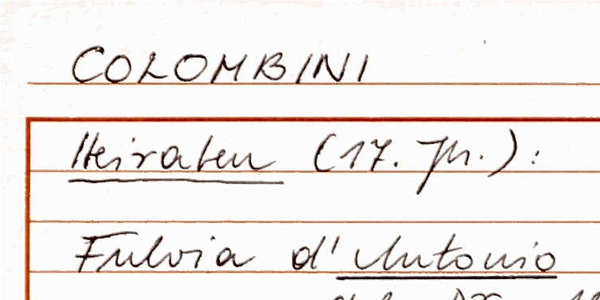 COLOMBINI
Heiraten (17. Jh.):
Fulvia d'Antonio